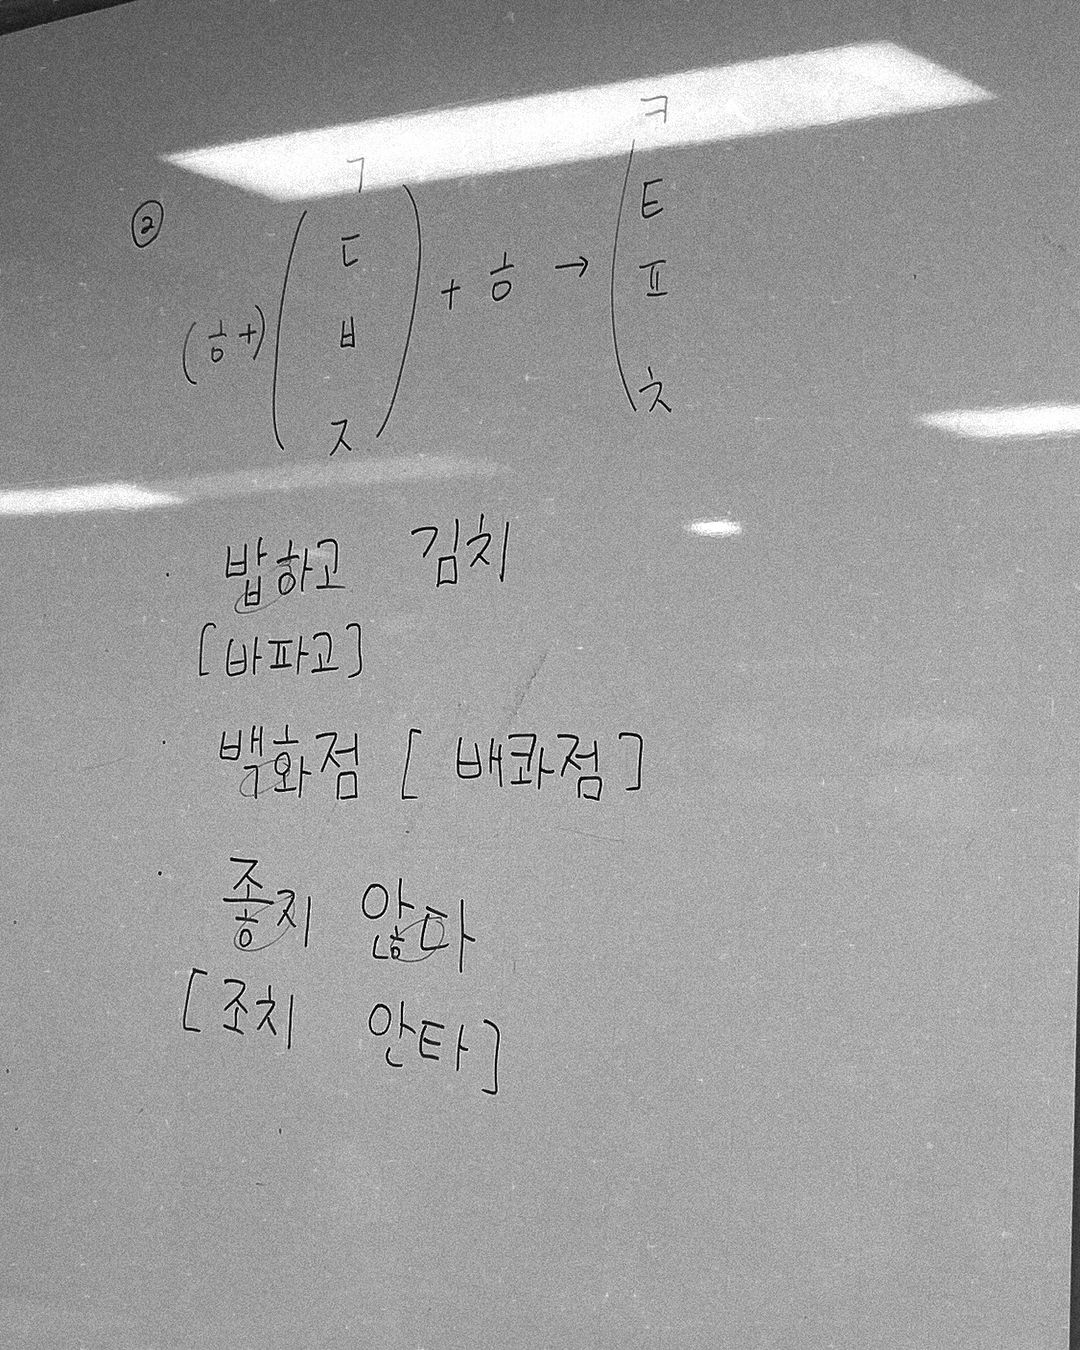 ②
(ㅎ+) ( ㄱ ㄷ ㅂ ㅈ ) + ㅎ → ( ㅋ ㅌ ㅍ ㅊ
· 밥하고 김치
[바파고]
· 백화점 [ 배콰점 ]
· 좋지 않다
[조치 안타]